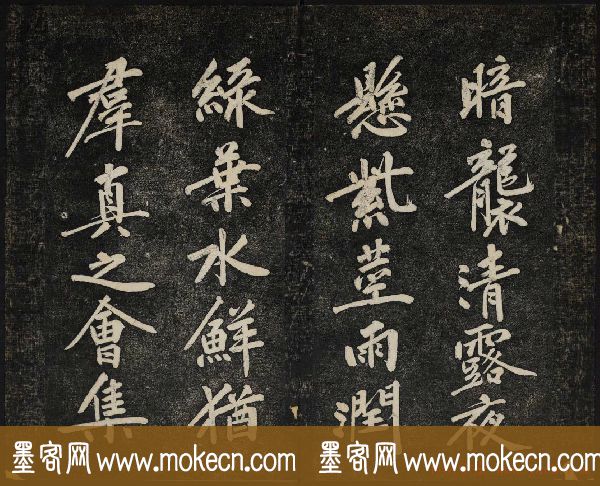 暗襲清露夜
懸紫莖雨潤
綠葉水鮮猶
羣真之會集
墨客网 www.mokecn.com 墨客网 www.mokecn.com